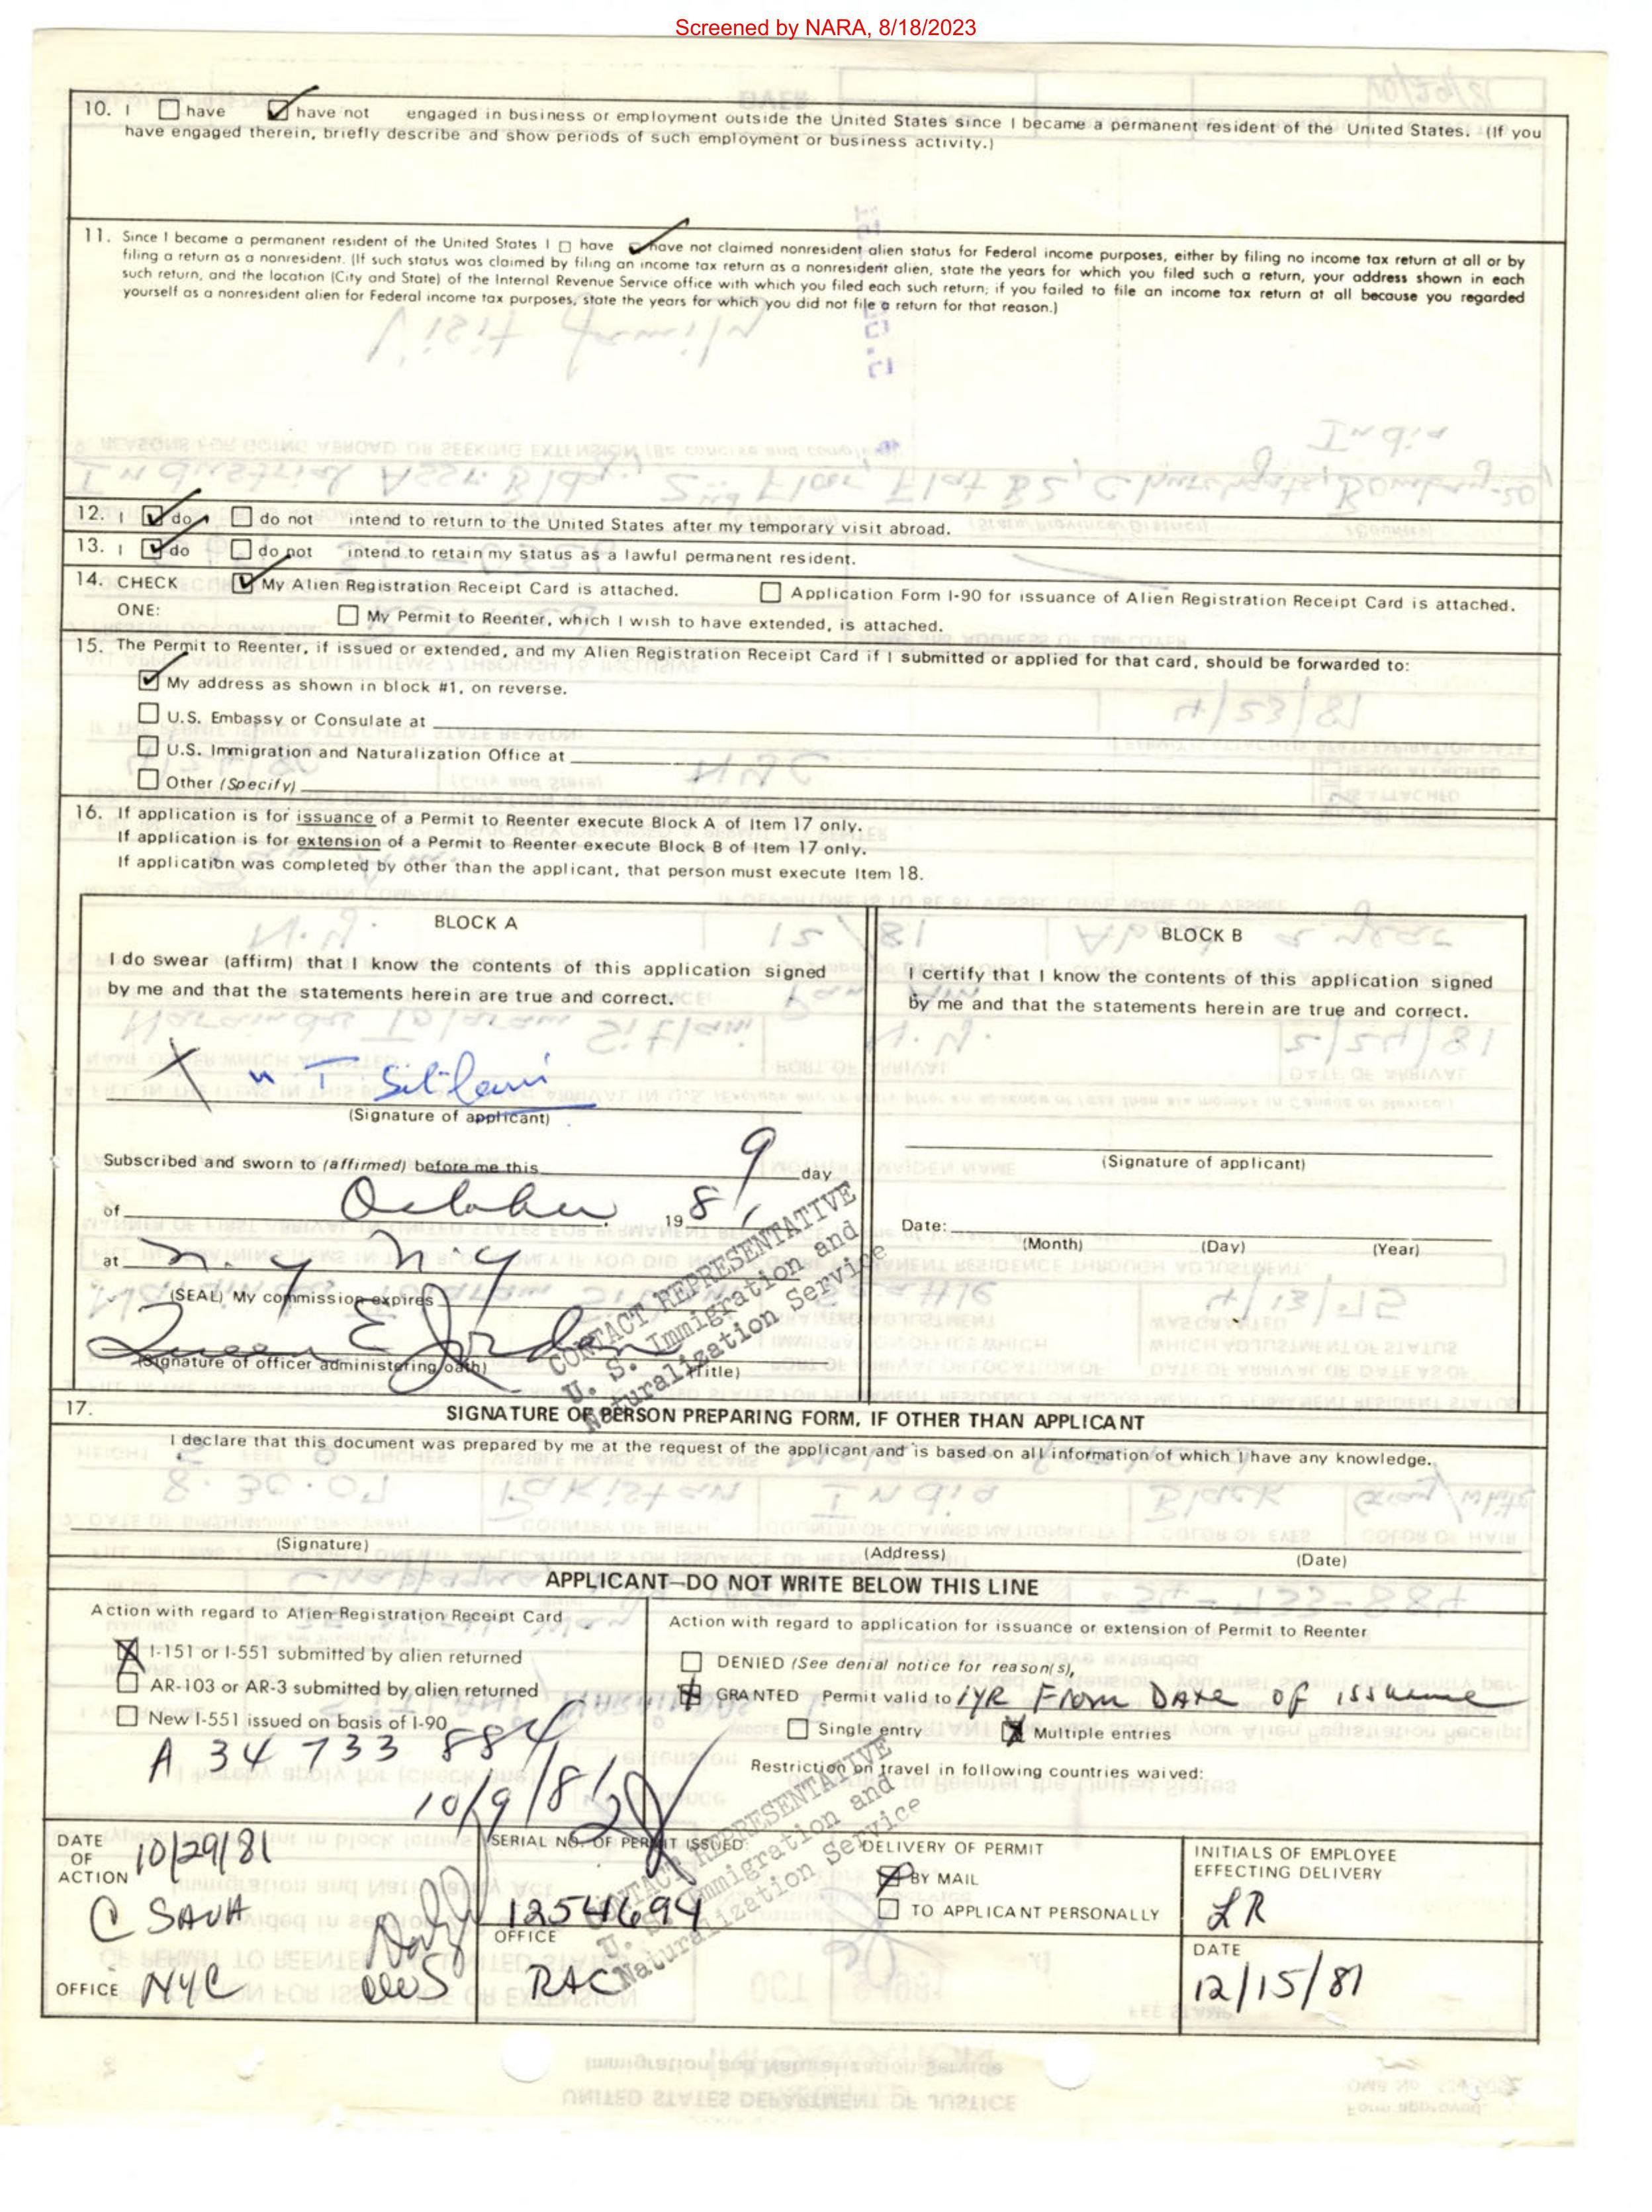 Screened by NARA, 8/18/2023
10. I ☐ have ☑ have not engaged in business or employment outside the United States since I became a permanent resident of the United States. (If you
have engaged therein, briefly describe and show periods of such employment or business activity.)
11. Since I became a permanent resident of the United States I ☐ have ☑ have not claimed nonresident alien status for Federal income purposes, either by filing no income tax return at all or by
filing a return as a nonresident. (If such status was claimed by filing an income tax return as a nonresident alien, state the years for which you filed such a return, your address shown in each
such return, and the location (City and State) of the Internal Revenue Service office with which you filed each such return; if you failed to file an income tax return at all because you regarded
yourself as a nonresident alien for Federal income tax purposes, state the years for which you did not file a return for that reason.)
12. I ☑ do ☐ do not intend to return to the United States after my temporary visit abroad.
13. I ☑ do ☐ do not intend to retain my status as a lawful permanent resident.
14. CHECK ☑ My Alien Registration Receipt Card is attached. ☐ Application Form I-90 for issuance of Alien Registration Receipt Card is attached.
ONE: ☐ My Permit to Reenter, which I wish to have extended, is attached.
15. The Permit to Reenter, if issued or extended, and my Alien Registration Receipt Card if I submitted or applied for that card, should be forwarded to:
☑ My address as shown in block #1, on reverse.
☐ U.S. Embassy or Consulate at
☐ U.S. Immigration and Naturalization Office at
☐ Other (Specify)
16. If application is for issuance of a Permit to Reenter execute Block A of Item 17 only.
If application is for extension of a Permit to Reenter execute Block B of Item 17 only.
If application was completed by other than the applicant, that person must execute Item 18.
BLOCK A
I do swear (affirm) that I know the contents of this application signed
by me and that the statements herein are true and correct.
X N T Sitlani
(Signature of applicant)
Subscribed and sworn to (affirmed) before me this 9 day
of October, 1981
at N.Y N.Y
(SEAL) My commission expires
Queen E Jordan
(Signature of officer administering oath) (Title)
CONTACT REPRESENTATIVE
U. S. Immigration and
Naturalization Service
BLOCK B
I certify that I know the contents of this application signed
by me and that the statements herein are true and correct.
(Signature of applicant)
Date:
(Month) (Day) (Year)
17. SIGNATURE OF PERSON PREPARING FORM, IF OTHER THAN APPLICANT
I declare that this document was prepared by me at the request of the applicant and is based on all information of which I have any knowledge.
(Signature) (Address) (Date)
APPLICANT—DO NOT WRITE BELOW THIS LINE
Action with regard to Alien Registration Receipt Card
☒ I-151 or I-551 submitted by alien returned
☐ AR-103 or AR-3 submitted by alien returned
☐ New I-551 issued on basis of I-90
A 34 733 884
10/9/81
Action with regard to application for issuance or extension of Permit to Reenter
☐ DENIED (See denial notice for reason(s),
☒ GRANTED Permit valid to 1YR From DATE OF issuance
☐ Single entry ☒ Multiple entries
Restriction on travel in following countries waived:
CONTACT REPRESENTATIVE
U. S. Immigration and
Naturalization Service
DATE OF ACTION 10/29/81
C SAVA
OFFICE NYC
SERIAL NO. OF PERMIT ISSUED
1254694
OFFICE
RAC
DELIVERY OF PERMIT
☒ BY MAIL
☐ TO APPLICANT PERSONALLY
INITIALS OF EMPLOYEE
EFFECTING DELIVERY
LR
DATE
12/15/81